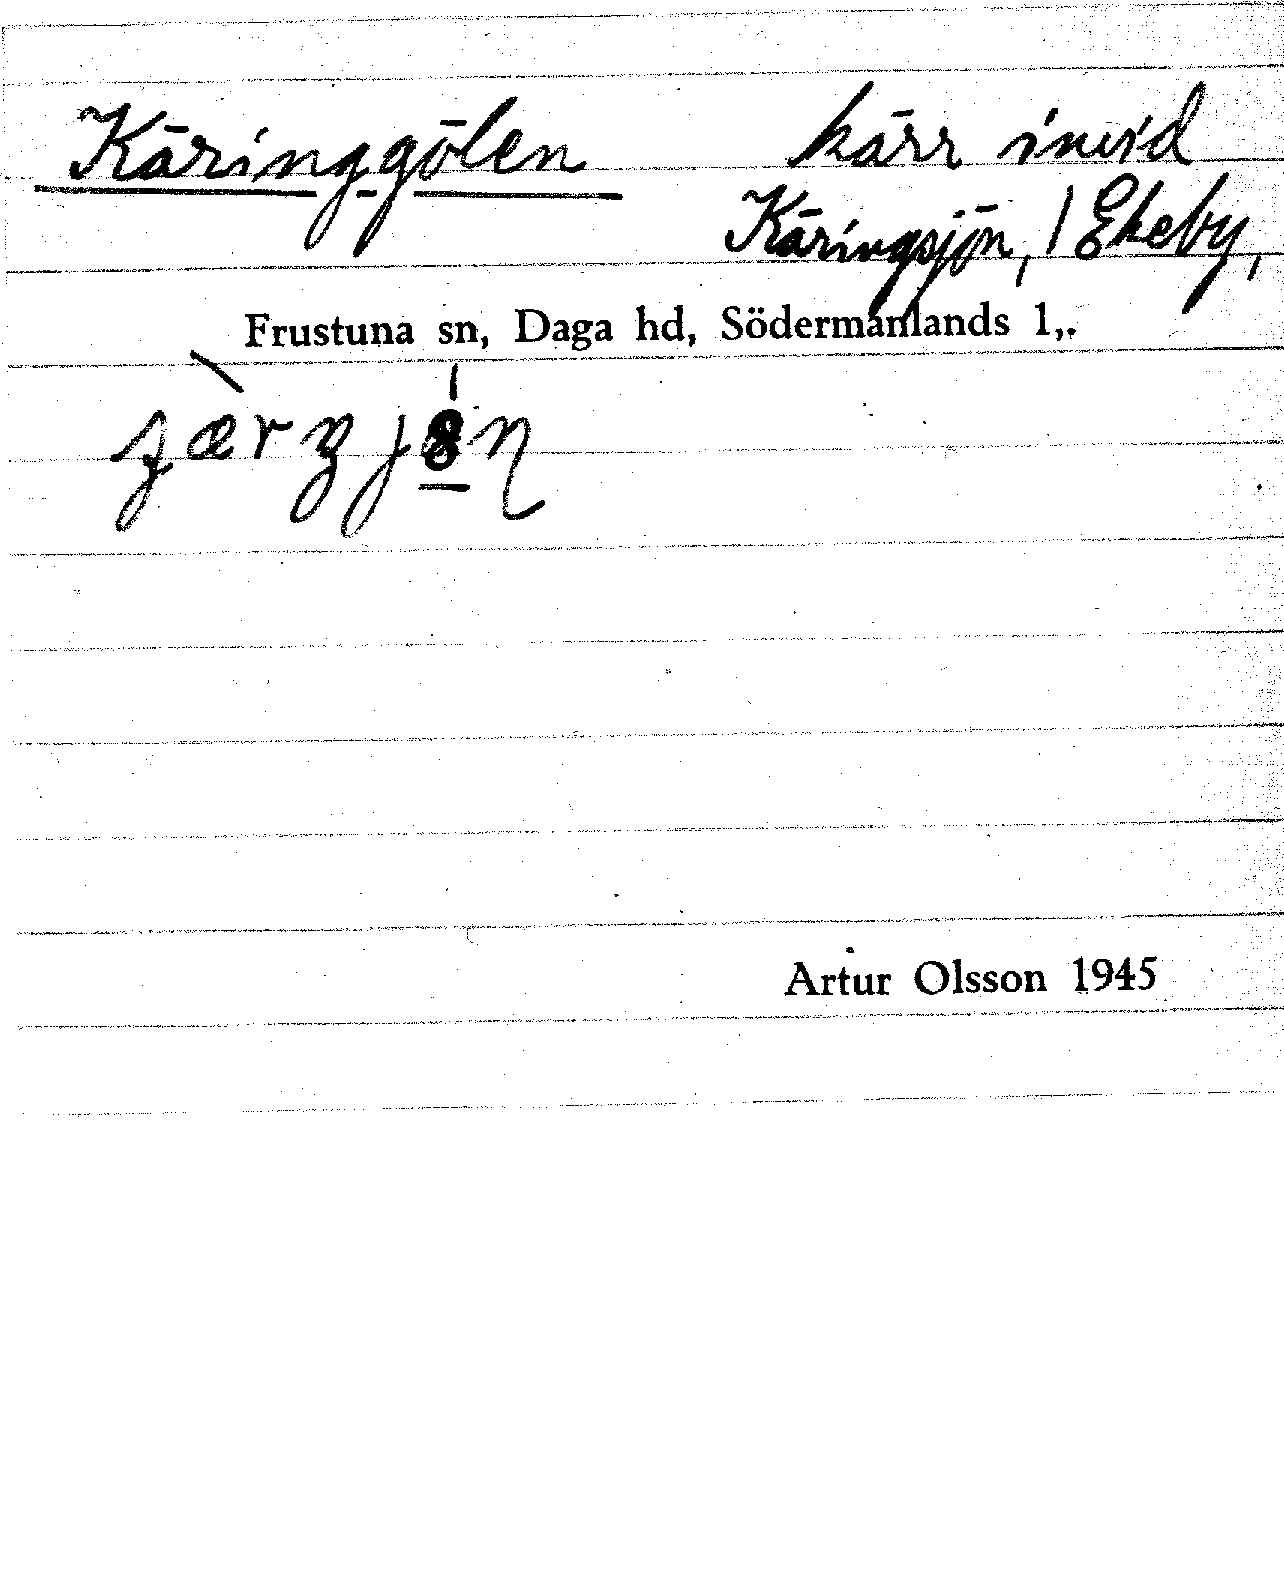 Käringgölen kärr invid
Käringsjön, / Ekeby,
Frustuna sn, Daga hd, Södermanlands l,.
Artur Olsson 1945